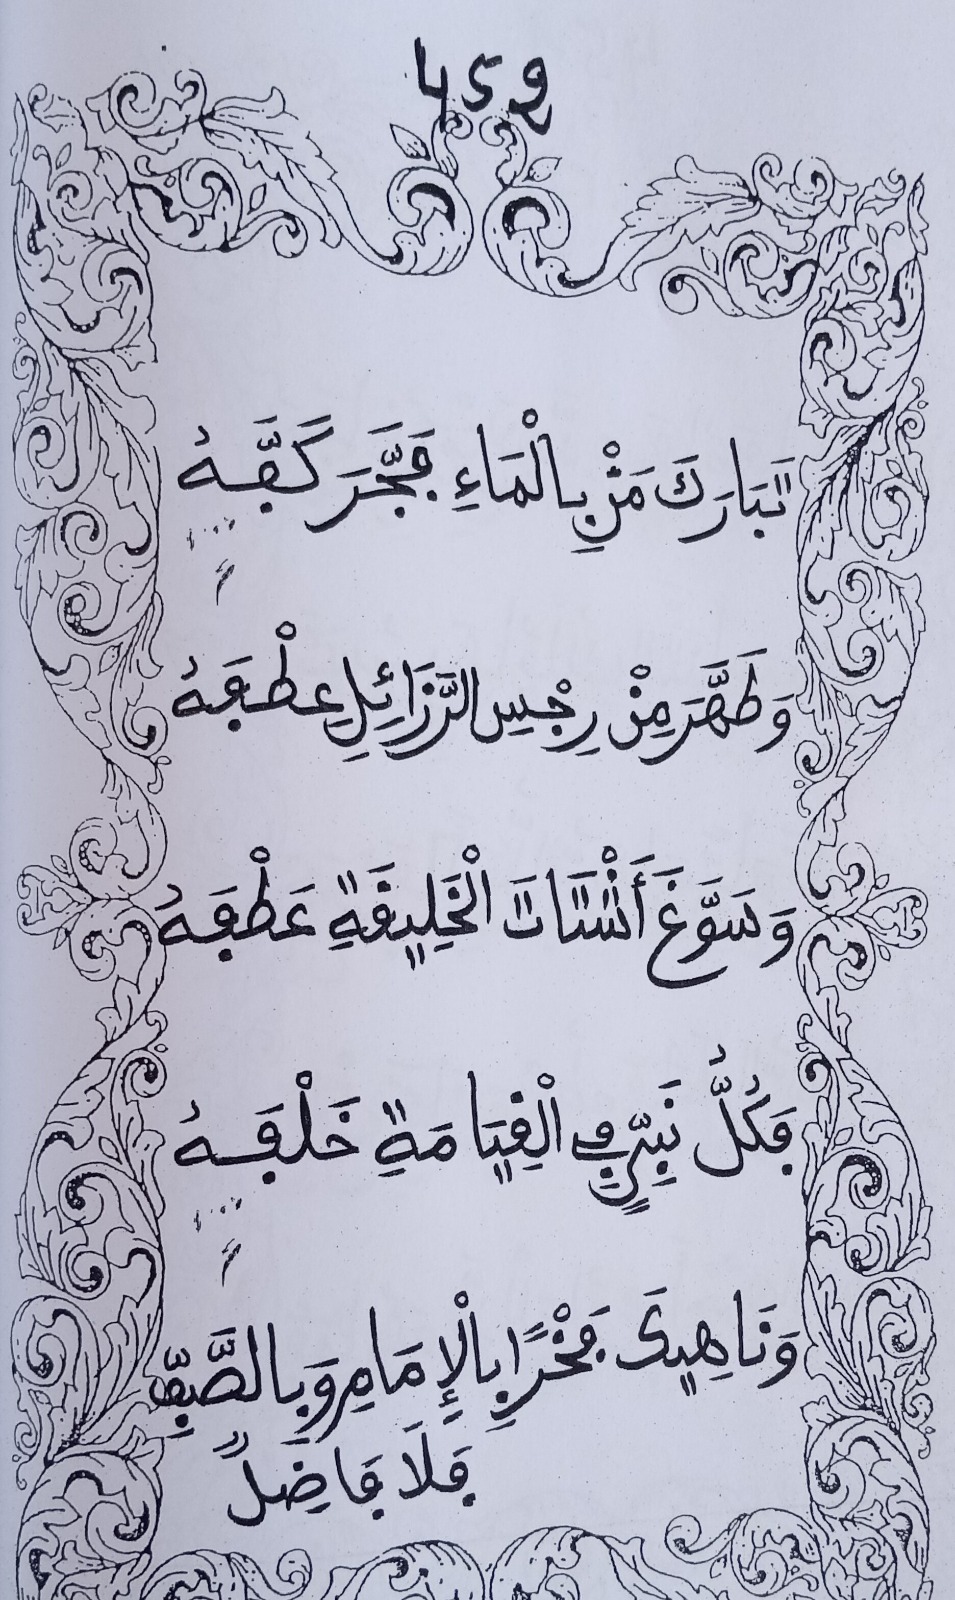 459
تَبَارَكَ مَنْ بِالْمَاءِ فَجَّرَ كَفَّهُ
وَطَهَّرَ مِنْ رِجْسِ الرَّزَائِلِ عِطْفَهُ
وَسَوَّغَ أَشْتَاتَ الْخَلِيقَةِ عَطْفَهُ
فَكُلُّ نَبِيٍّ فِي الْقِيَامَةِ خَلْفَهُ
وَنَاهِيكَ فَخْرًا بِالْإِمَامِ وَبِالصَّفِّ
فَلَا فَاضِلٌ